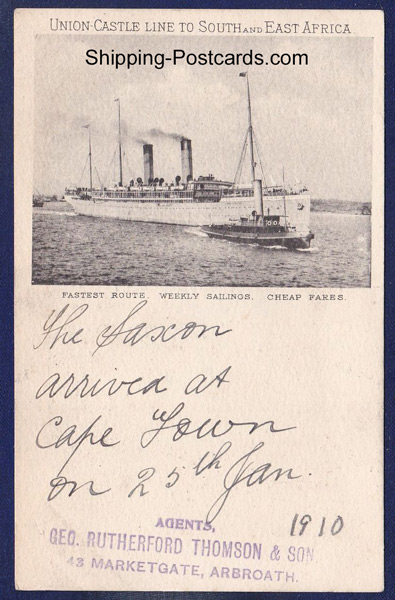 UNION-CASTLE LINE TO SOUTH AND EAST AFRICA
Shipping-Postcards.com
FASTEST ROUTE. WEEKLY SAILINGS. CHEAP FARES.
The Saxon
arrived at
Cape Town
on 25th Jan.
1910
AGENTS,
GEO. RUTHERFORD THOMSON & SON
43 MARKETGATE, ARBROATH.